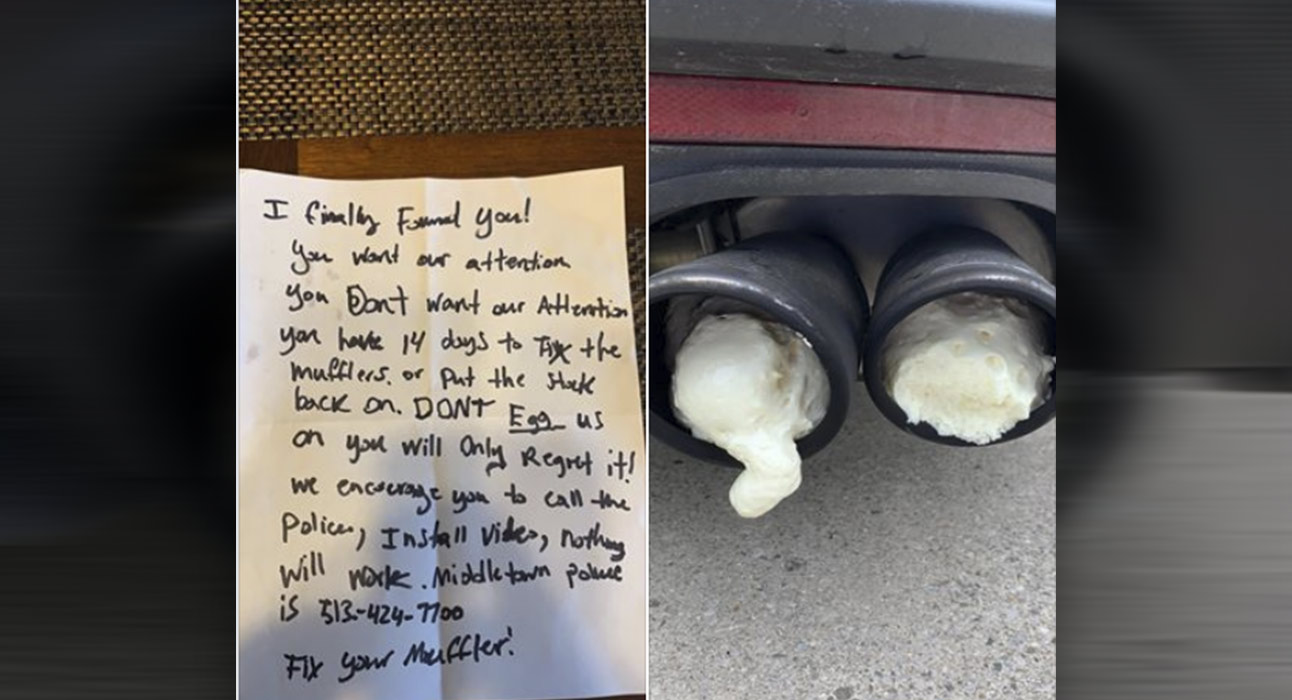 I finally Found you!
you want our attention
you Dont want our Attention
you have 14 days to Fix the
mufflers. or put the stock
back on. DONT Egg us
on you will Only Regret it!
we encourage you to call the
Police, Install Video, nothing
will work. Middletown police
is 513-424-7700
Fix your Muffler!